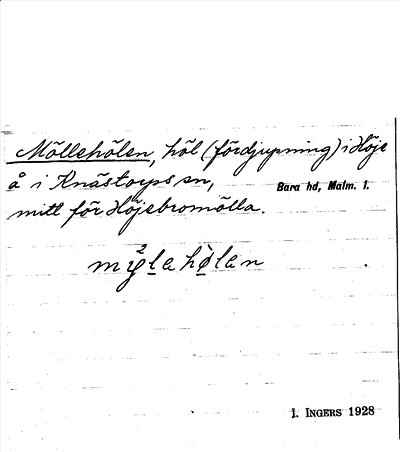 Möllehölen, höl (fördjupning) i Höje
å i Knästorps sn, Bara hd, Malm. l.
mitt för Höjebromölla.
J. INGERS 1928